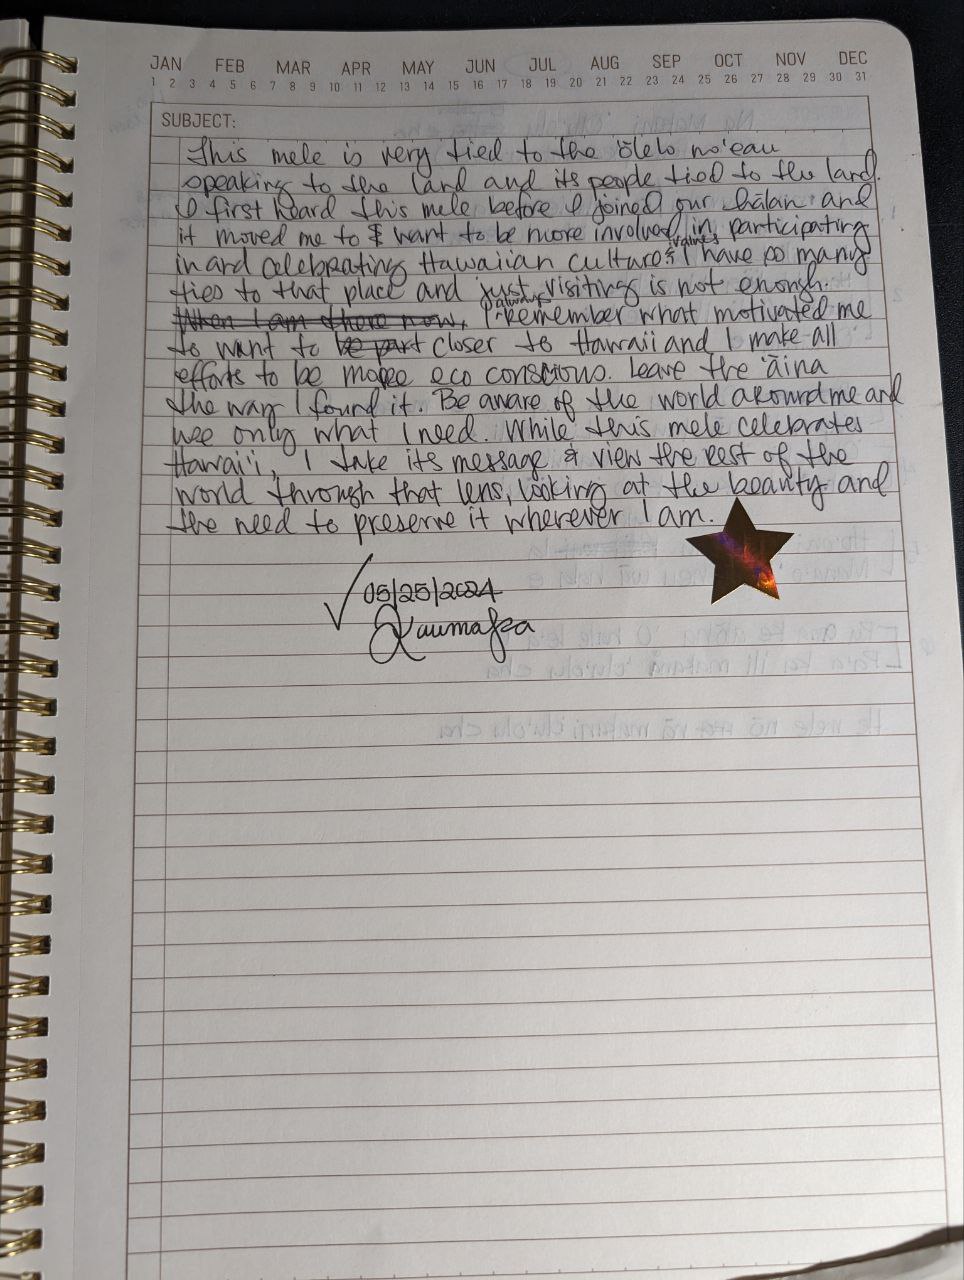 JAN FEB MAR APR MAY JUN JUL AUG SEP OCT NOV DEC
1 2 3 4 5 6 7 8 9 10 11 12 13 14 15 16 17 18 19 20 21 22 23 24 25 26 27 28 29 30 31
SUBJECT:
This mele is very tied to the ʻōlelo noʻeau
speaking to the land and its people tied to the land.
I first heard this mele before I joined our hālau and
it moved me to want to be more involved in participating
in and celebrating Hawaiian culture & values. I have so many
ties to that place and just visiting is not enough.
When I am there now, I always remember what motivated me
to want to be part closer to Hawaii and I make all
efforts to be more eco conscious. Leave the ʻāina
the way I found it. Be aware of the world around me and
use only what I need. While this mele celebrates
Hawaiʻi, I take its message & view the rest of the
world through that lens, looking at the beauty and
the need to preserve it wherever I am.
05/25/2024